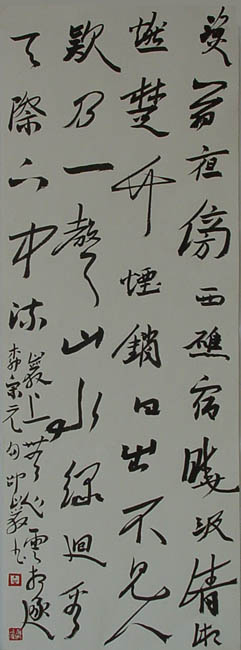 漁翁夜傍西礁宿曉汲清湘
燃楚竹煙銷日出不見人
欸乃一聲山水綠迴看
天際下中流
巖上無心雲相逐
柳宗元句印巖书